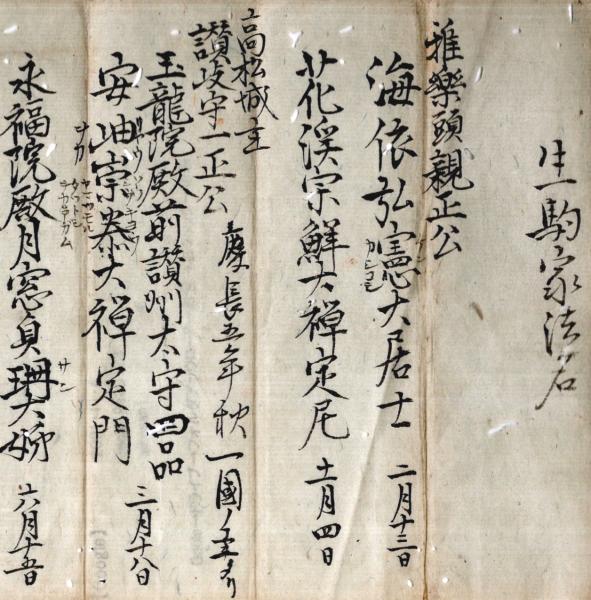 生駒家法名
雅樂頭親正公
海依弘憲大居士 二月十三日
芲渓宗鮮大禅定尼 十一月四日
高松城主
讃岐守一正公 慶長五年秋一國ノ主ナリ
玉龍院殿前讃州太守四品
安山宗泰大禅定門 三月十八日
永福院殿月窓貞珊大姉 六月十五日